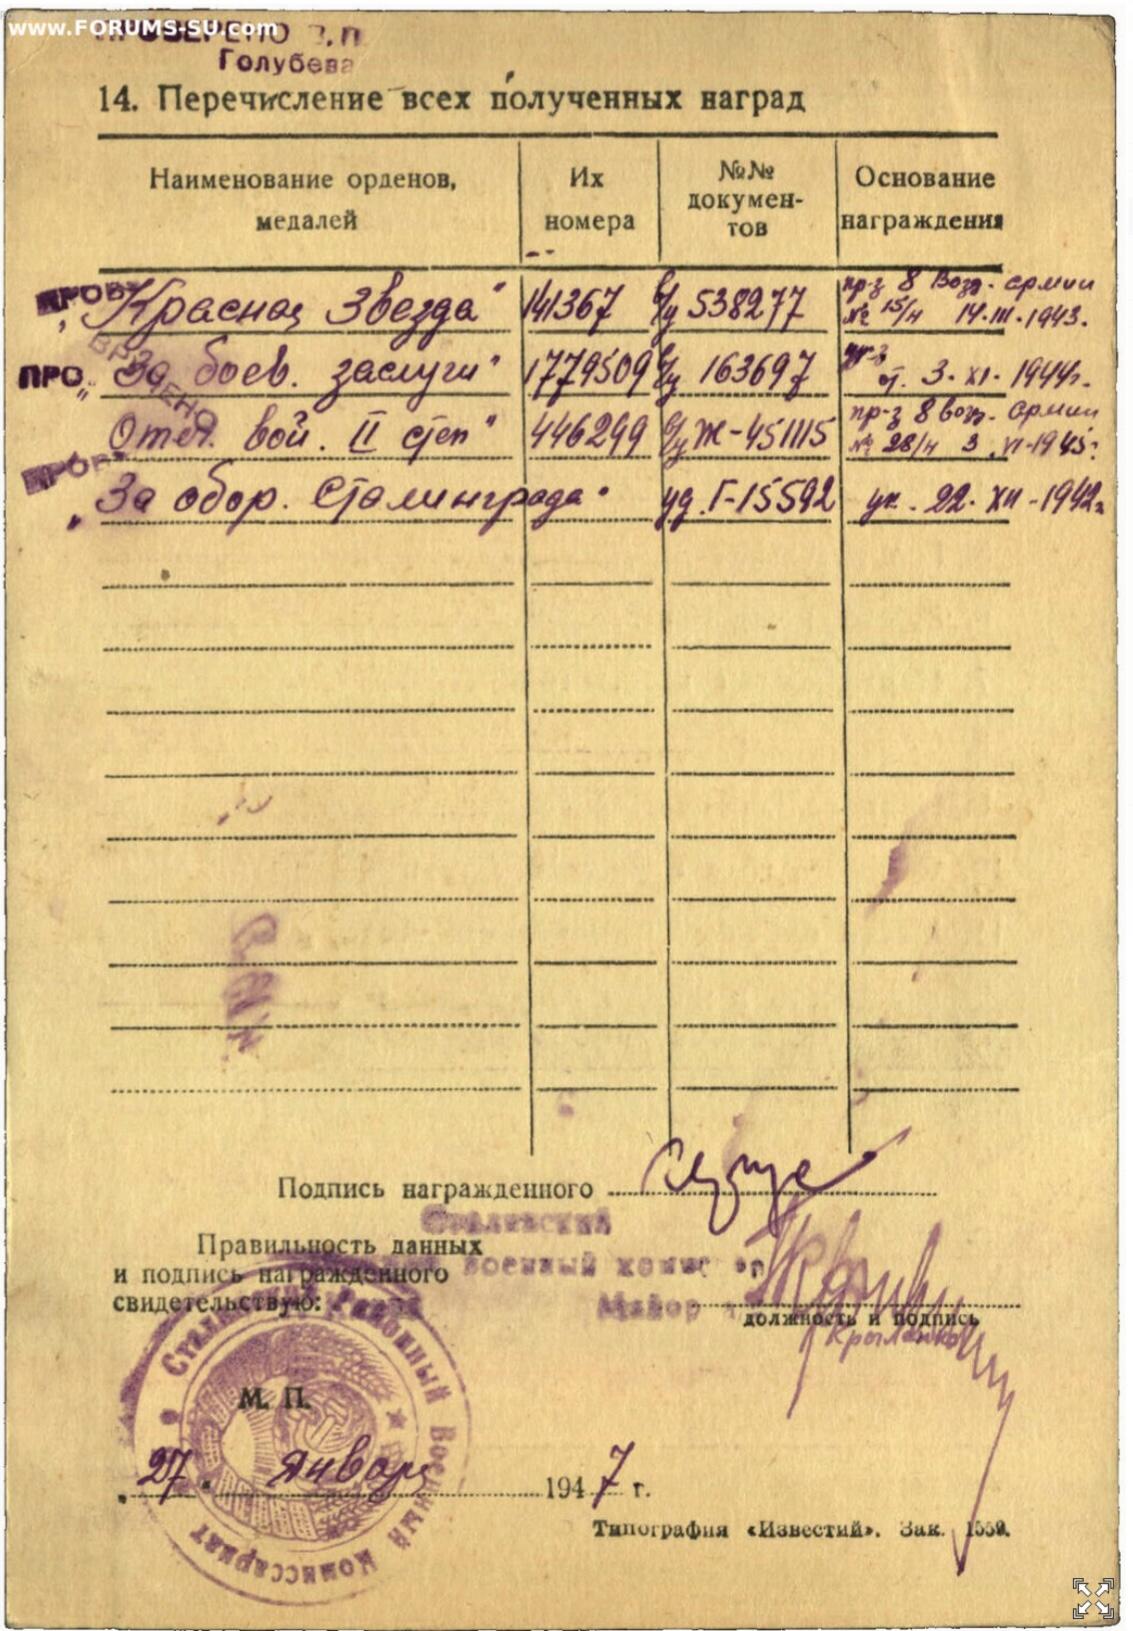 www.FORUMS-SU.com
ПРОВЕРЕНО В.П.
Голубева
14. Перечисление всех полученных наград
Наименование орденов, медалей
Их номера
№№ документов
Основание награждения
„Красная Звезда“ 141367 в/у 538277 пр-з 8 Возд. армии № 15/н 14.III.1943.
„За боев. заслуги“ 1779509 в/у 163697 от. 3.XI.1944г.
Отеч. вой. II степ“ 446299 в/у Ж-451115 пр-з 8 возд. армии № 28/н 3.VI-1945г.
„За обор. Сталинграда“ уд. Г-15592 ук. 22.XII-1942г.
ПРОВ
ПРО
ПРОВ
Подпись награжденного
Правильность данных
и подпись награжденного
свидетельствую:
Сталинский
военный комиссар
Майор
должность и подпись
Крыленко
Сталинский Районный Военный Комиссариат
М. П.
„27“ января 1947 г.
Типография «Известий». Зак. 1559.